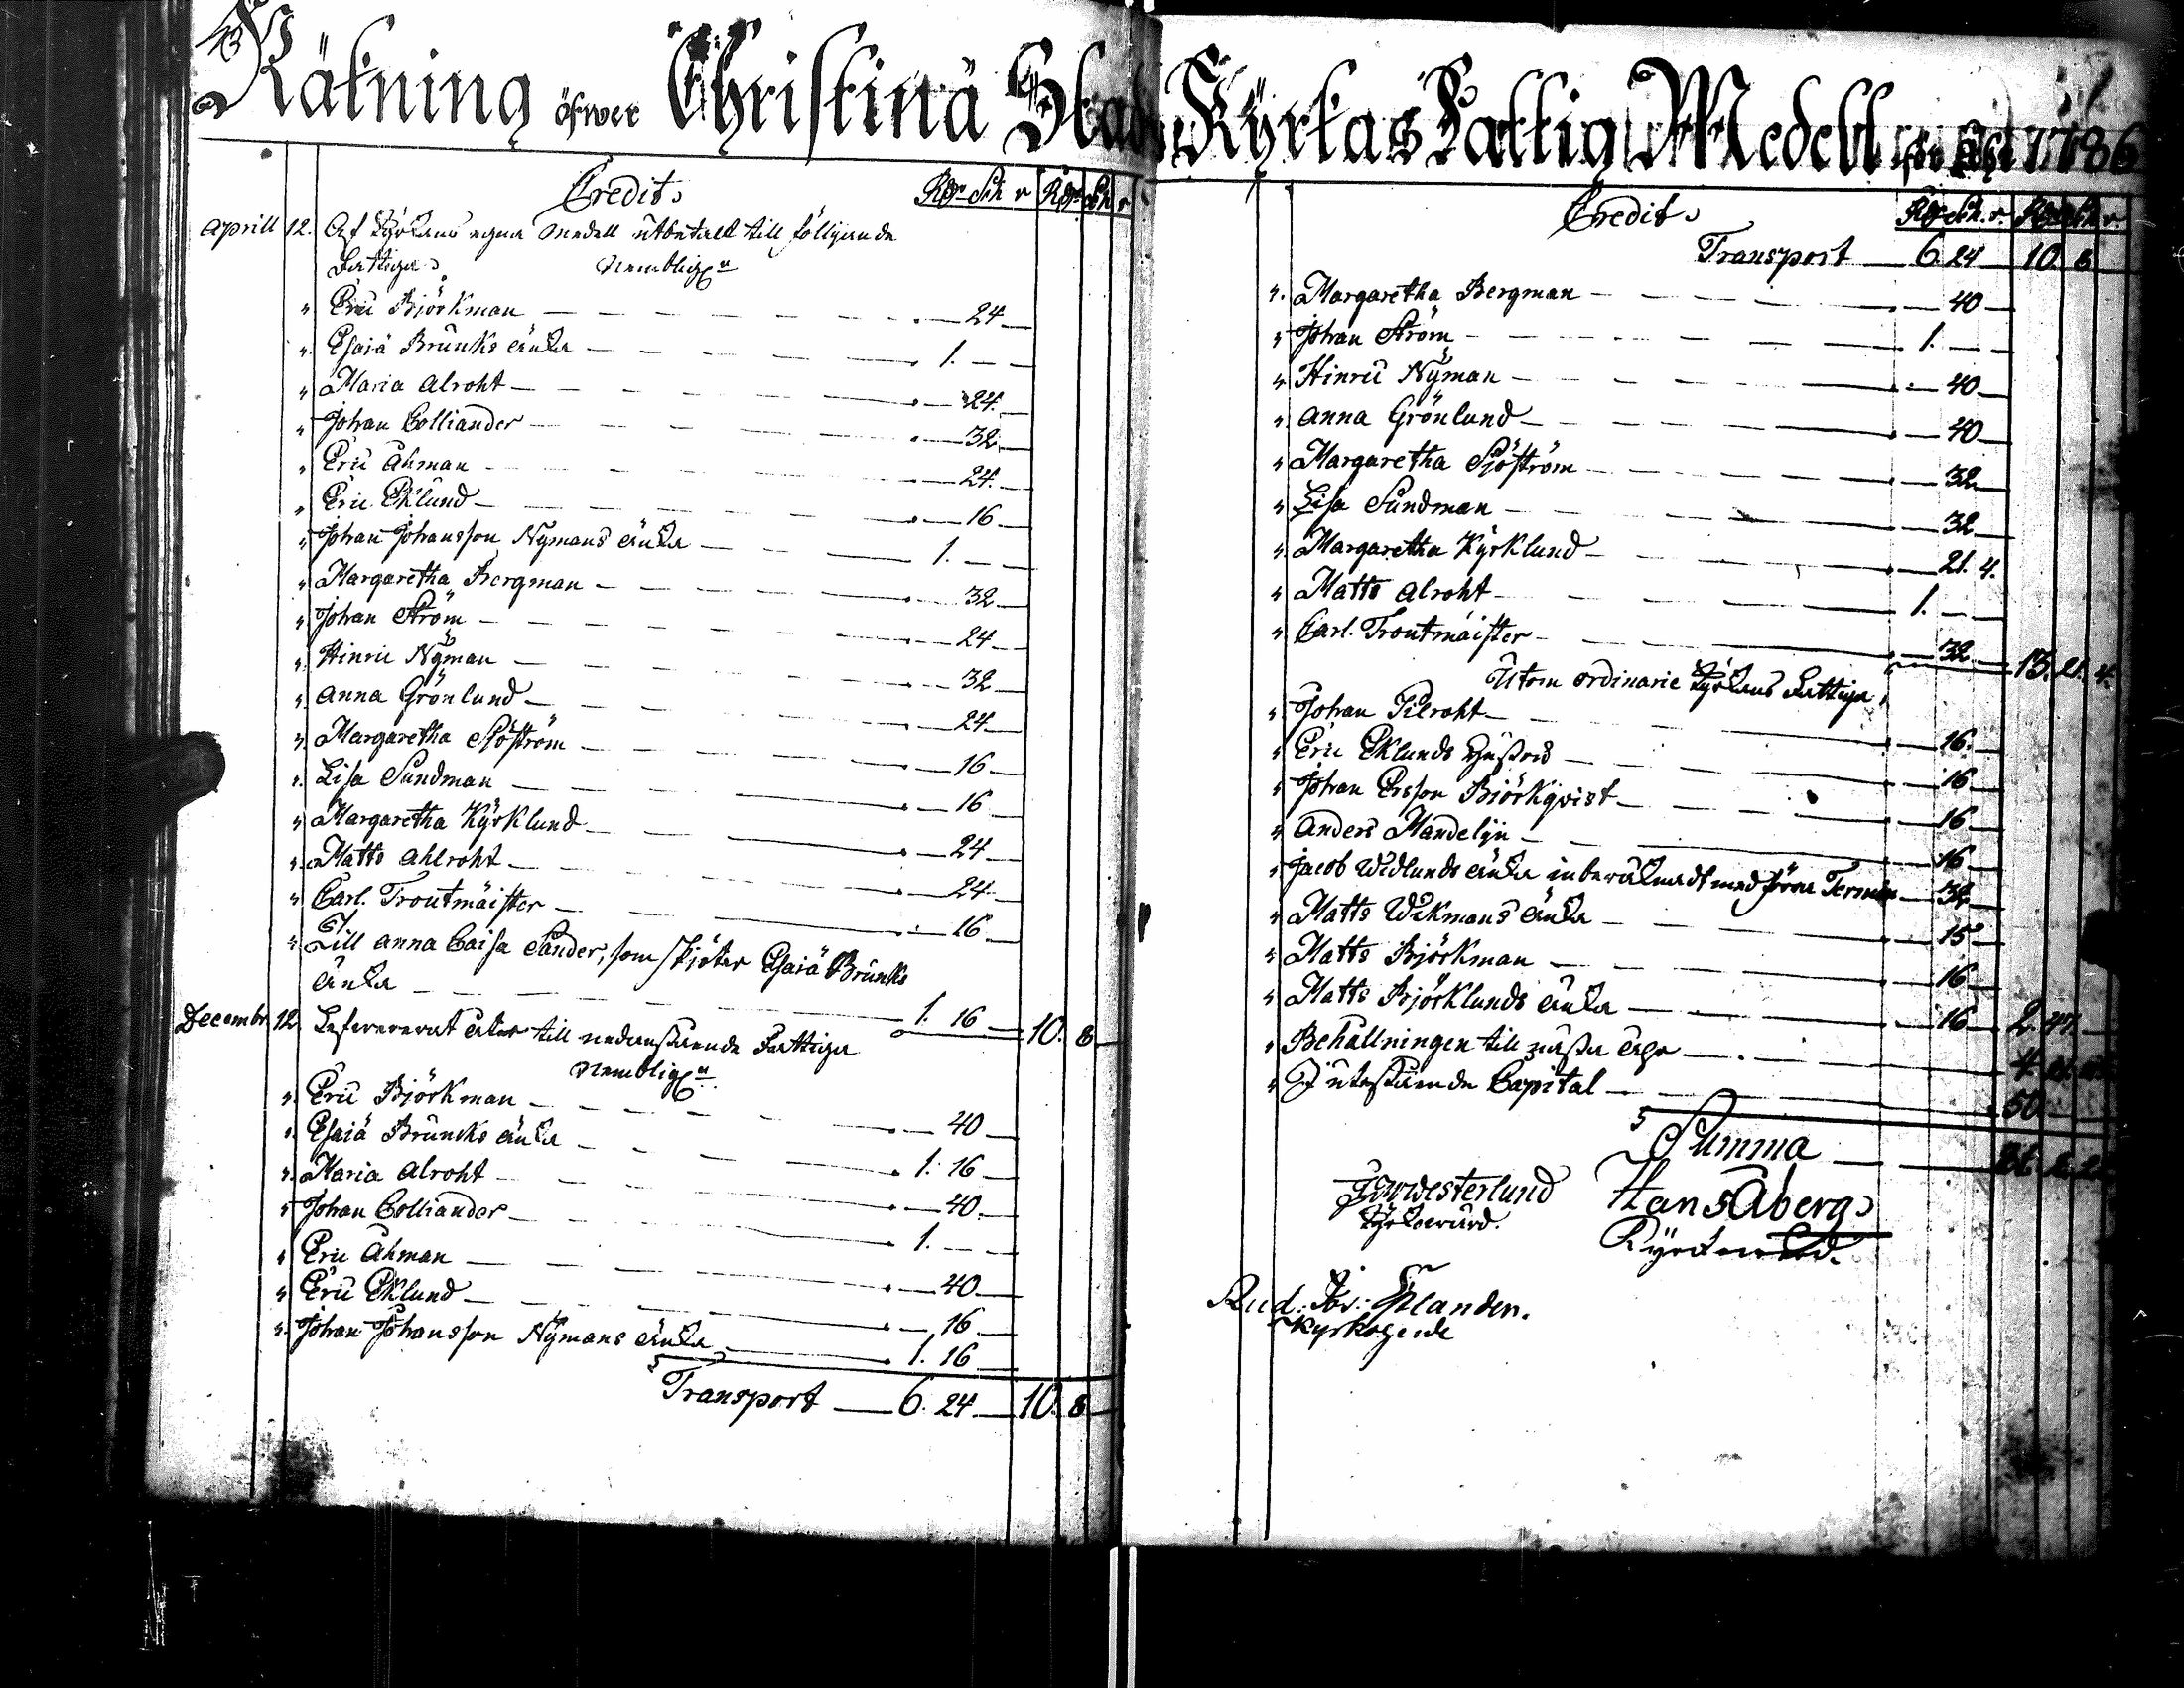 Räkning öfwer Christinæ Stads Kyrkas Fattig Medell för åhr 1786
Credit. Rdr Sch r Rdr Sch r
Aprill 12. Af Kyrkans egna Medell utbetalt till följande
Fattiga Nemblign
" Eric Björkman — 24 —
" Esaiæ Brunks änka — 1. — —
" Maria Alroht — 24. —
" Johan Colliander — 32 —
" Eric Åhman — 24. —
" Eric Eklund — 16 —
" Johan Johansson Nymans änka — 1. — —
" Margaretha Bergman — 32 —
" Johan Ström — 24 —
" Hinric Nyman — 32 —
" Anna Grönlund — 24 —
" Margaretha Sjöström — 16 —
" Lisa Sundman — 16 —
" Margaretha Kyrklund — 24 —
" Matts Ahlroht — 24 —
" Carl Troutmäister — 16 —
" Till Anna Caisa Sander, som skjöter Esaiæ Brunks
änka — 1. 16 — 10. 8 —
Decembr 12. Lefwererat åter till nedanstående Fattiga
Nemblign
" Eric Björkman — 40 —
" Esaiæ Bruncks änka — 1. 16 —
" Maria Alroht — 40. —
" Johan Colliander — 1. — —
" Eric Åhman — 40 —
" Eric Eklund — 16 —
" Johan Johansson Nymans änka — 1. 16 —
Transport — 6. 24 — 10. 8 —
Credit. Rdr Sch. r. Rdr Sch r.
Transport — 6. 24 — 10. 8 —
" Margaretha Bergman — 40 —
" Johan Ström — 1. — —
" Hinric Nyman — 40 —
" Anna Grönlund — 40 —
" Margaretha Sjöström — 32 —
" Lisa Sundman — 32 —
" Margaretha Kyrklund — 21. 4.
" Matts Alroht — 1. — —
" Carl Troutmäister — 32 — 13. 21. 4.
Utom ordinarie Kyrkans Fattiga,
" Johan Pilroht — 16. —
" Eric Eklunds hustru — 16 —
" Johan Ersson Björkqvist — 16 —
" Anders Mandelin — 16 —
" Jacob Widlunds änka inberäknadt med förra Termin — 32 —
" Matts Wikmans änka — 15 —
" Matts Björkman — 16 —
" Matts Björklunds änka — 16 — 2. 47. —
" Behållningen till nästa åhr —
" I utestående Capital — 50. —
Summa —
Westerlund
Kyrkowärd.
Hans Åberg
Kyrckowärd.
Rud.
Kyrkoherde